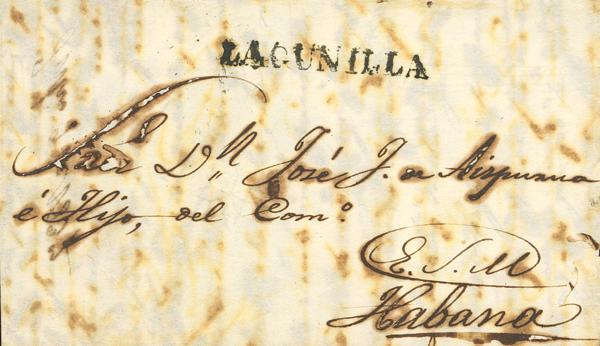 LAGUNILLA
Sres. Dn. José J. de Aizpurua
é Hijo, del Com.o
E. S. M
Habana